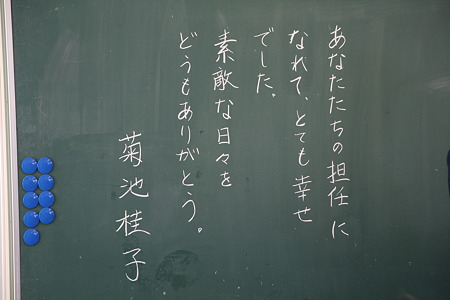 あなたたちの担任に
なれて、とても幸せ
でした。
素敵な日々を
どうもありがとう。
菊池桂子